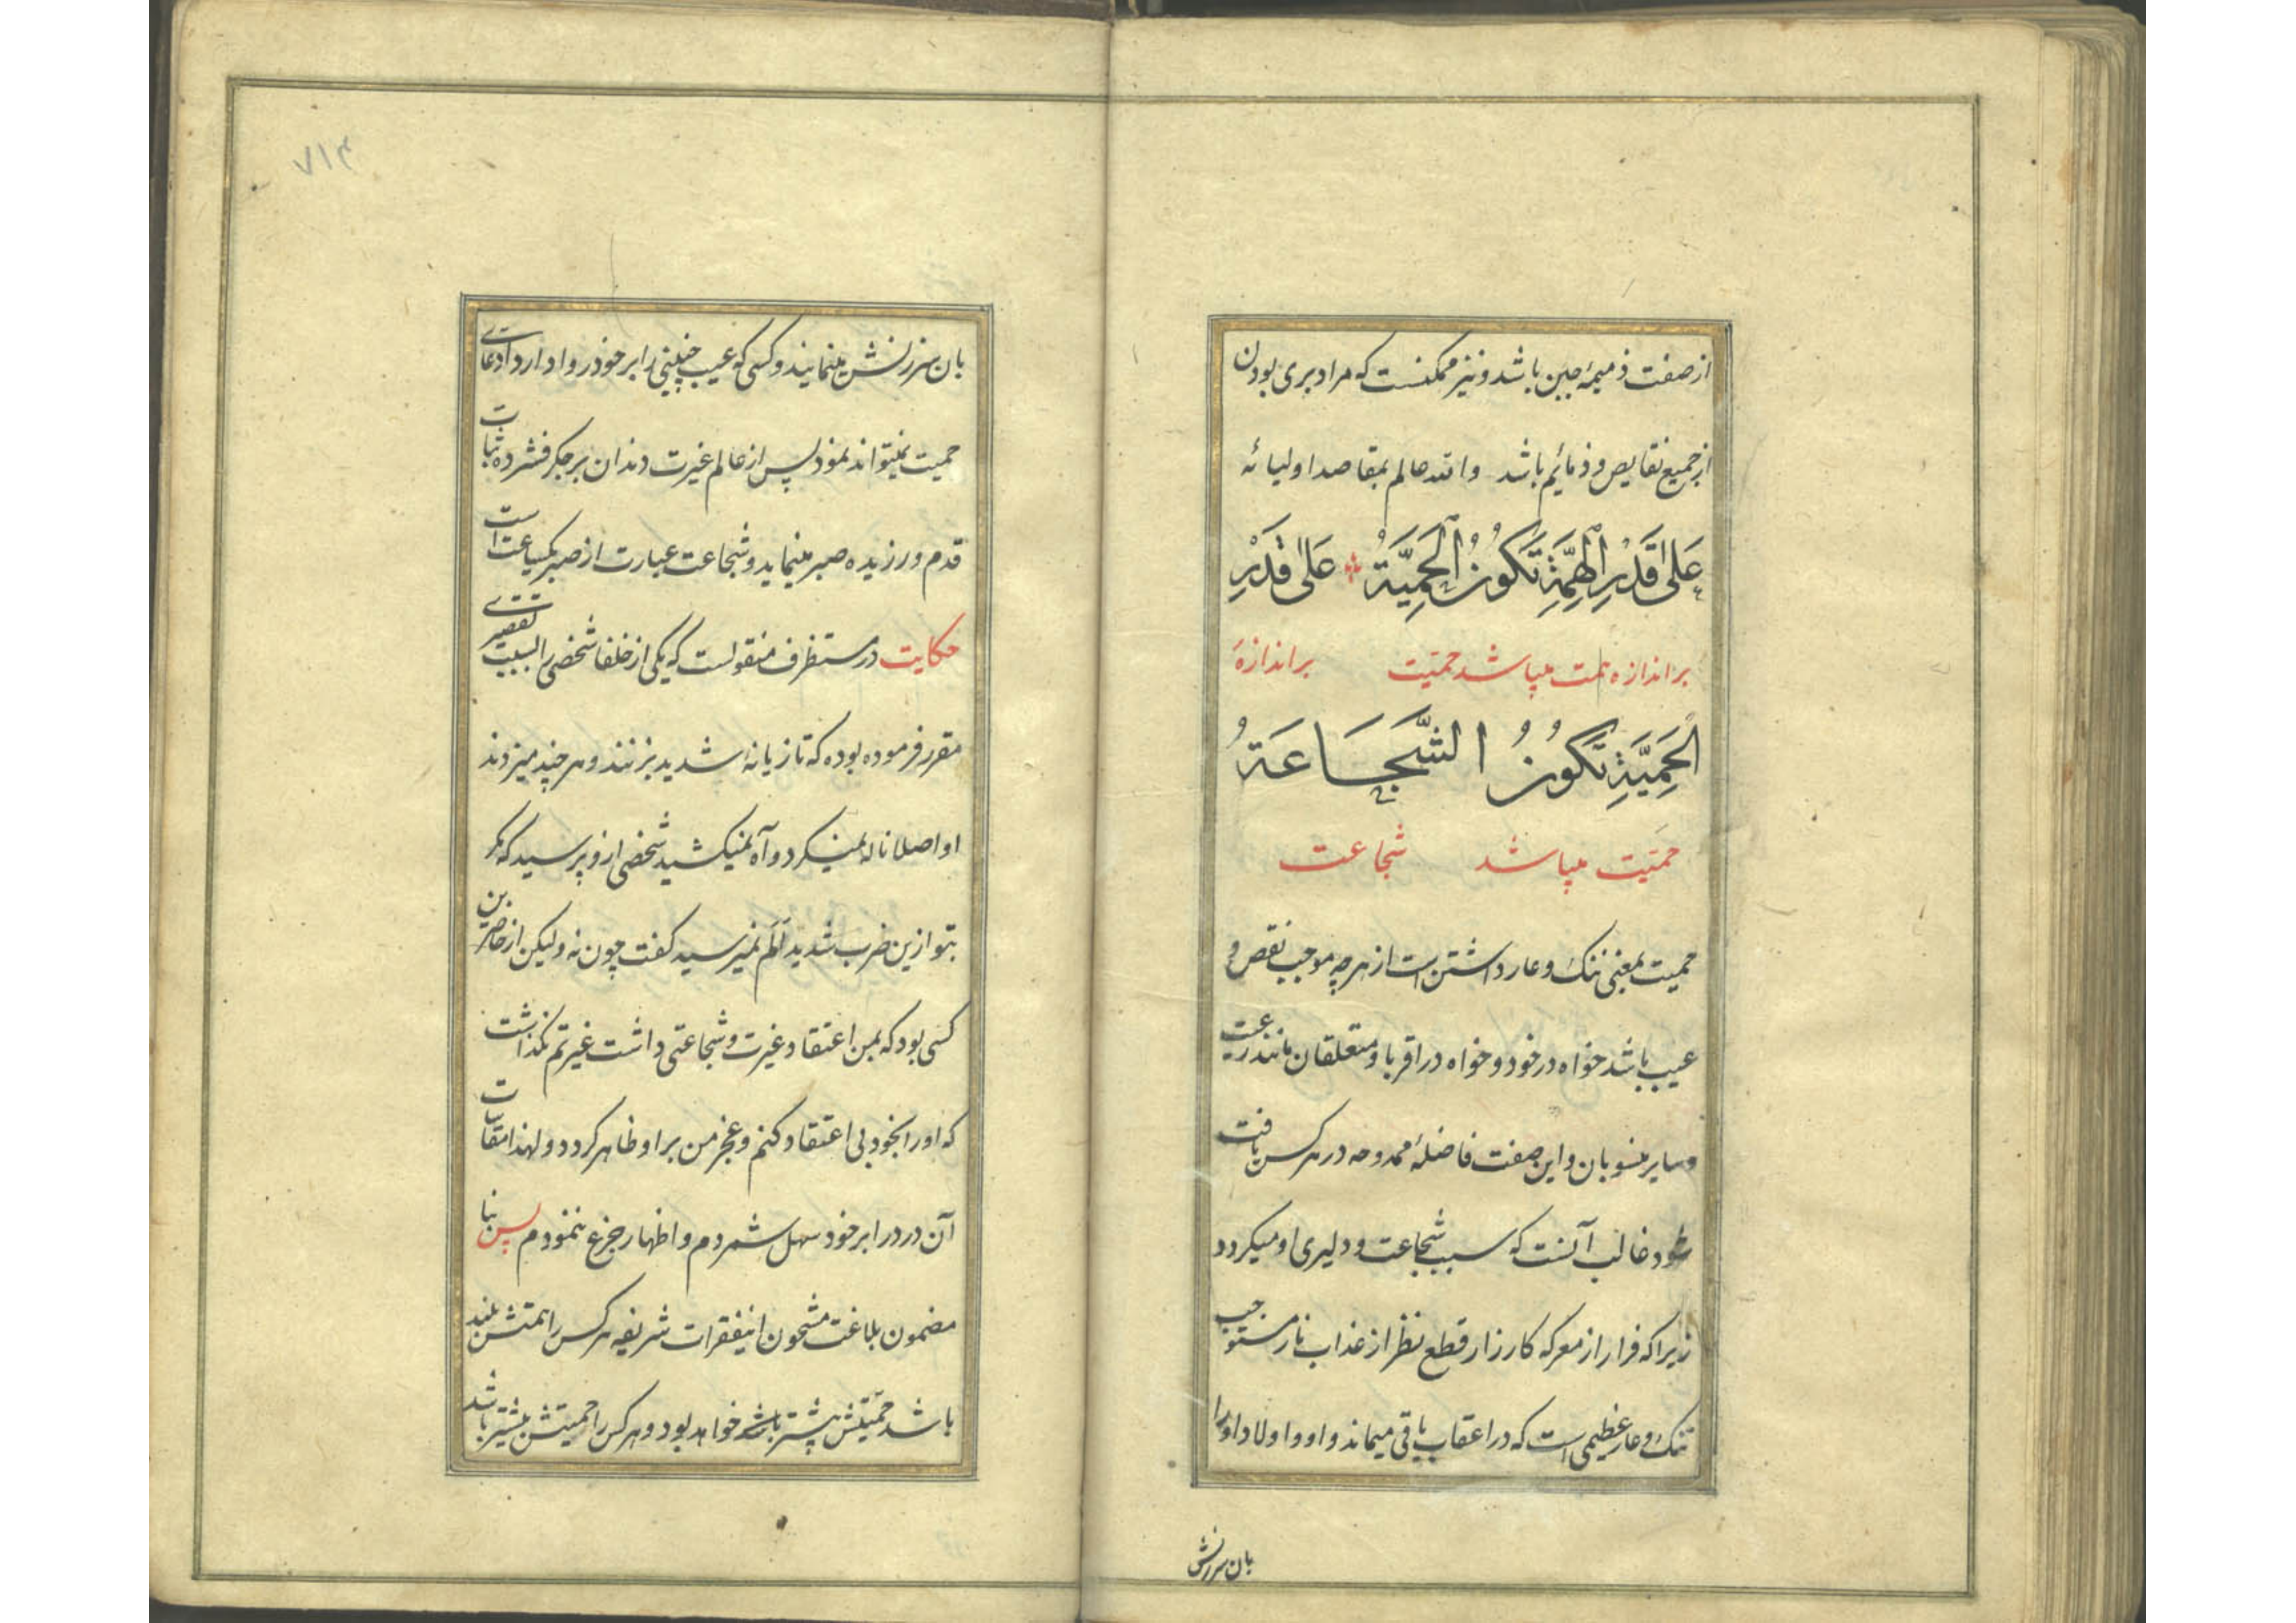 از صفت ذمیمهٔ جبن باشد و نیز ممکنست که مراد بری بودن
از جمیع نقایص و ذمائم باشد والله عالم بمقاصد اولیائه
عَلیٰ قَدْرِ الْهِمَّةِ تَکُونُ الْحَمِیَّةُ عَلیٰ قَدْرِ
بر اندازه همت میباشد حمیّت بر اندازهٔ
الْحَمِیَّةِ تَکُونُ الشَّجَاعَةُ
حمیّت میباشد شجاعت
حمیت بمعنی ننک و عار داشتن است از هر چه موجب نقص و
عیب باشد خواه در خود و خواه در اقربا و متعلقان مانند رعیت
و سایر منسوبان و این صفت فاضلهٔ ممدوحه در هر کس یافت
شود غالب آنست که سبب شجاعت و دلیری او میکردد
زیرا که فرار از معرکه کارزار قطع نظر از عذاب نار مستوجب
ننک و عار عظیمی است که در اعقاب باقی میماند و او و اولاد او را
بان سرزنش
۷۱۴
بان سرزنش مینمایند و کسی که عیب چنینی را بر خود روا دارد ادعای
حمیت نمیتواند نمود پس از عالم غیرت دندان بر جکر فشرده ثبات
قدم ورزیده صبر مینماید و شجاعت عبارت از صبر یکساعت است
حکایت در مستظرف منقولست که یکی از خلفا شخصی را بسبب تقصیری
مقرر فرموده بوده که تازیانهٔ شدید بزنند و هر چند میزدند
او اصلا ناله نمیکرد و آه نمیکشید شخصی ازو پرسید که مکر
بتو ازین ضرب شدید اَلَم نمیرسید کفت چون نه ولیکن از حاضرین
کسی بود که بمن اعتقاد غیرت و شجاعتی داشت غیرتم نکذاشت
که او را بخود بی اعتقاد کنم و عجز من بر او ظاهر کردد و لهذا مقاسات
آن درد را بر خود سهل شمردم و اظهار جزع ننمودم پس بنا
مضمون بلاغت مشحون اینفقرات شریفه هر کس را همتش بلند
باشد حمیّتش بیشتر باشد خواهد بود و هر کس را حمیتش بیشتر باشد